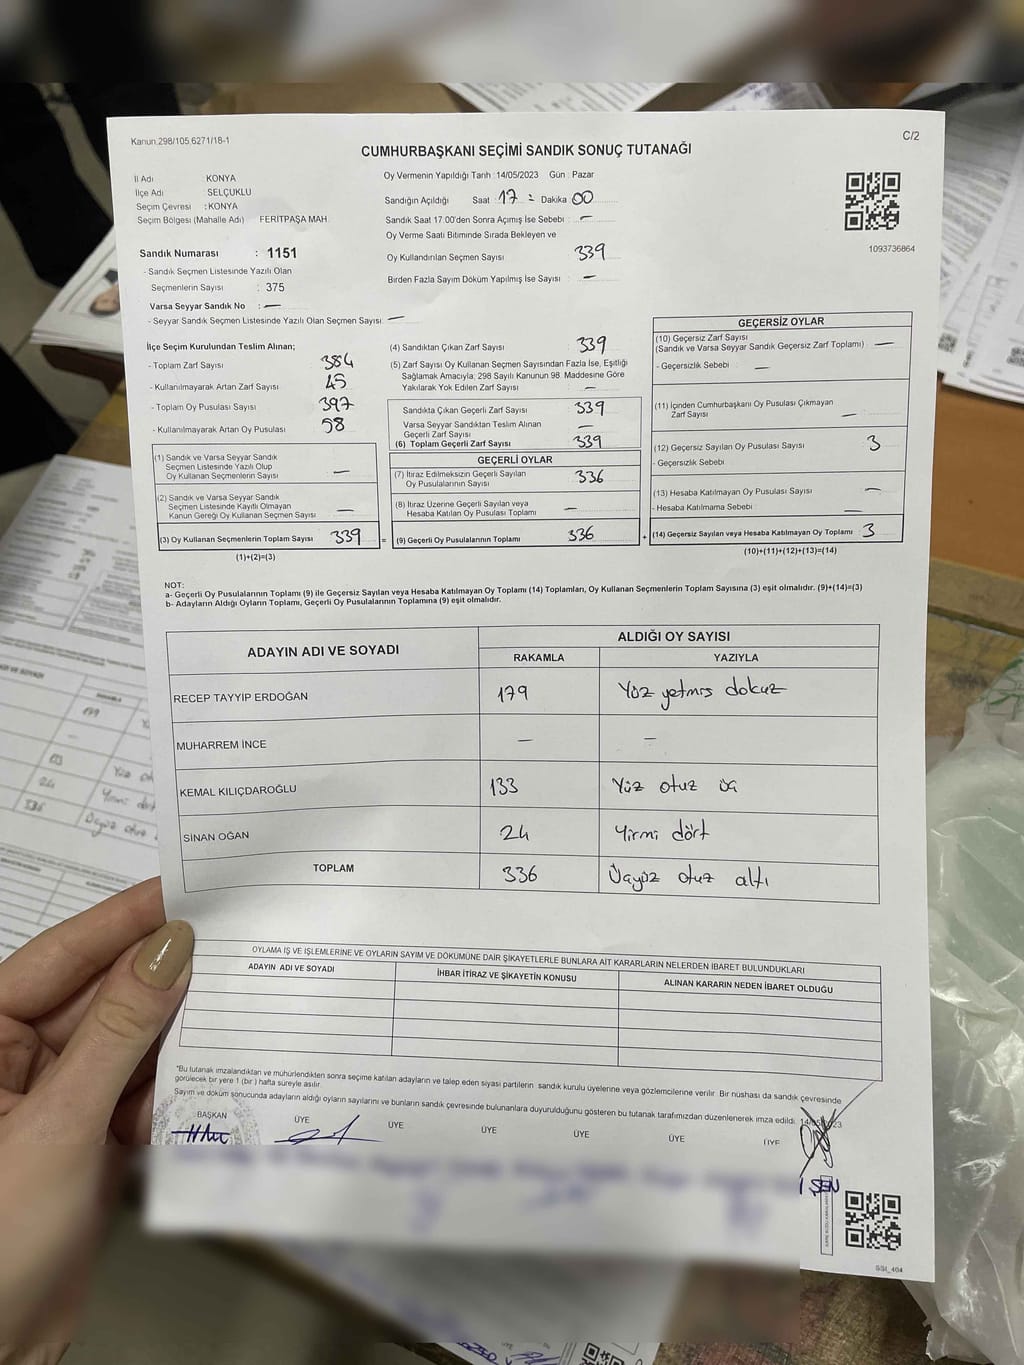 Kanun.298/105.6271/18-1
C/2
CUMHURBAŞKANI SEÇİMİ SANDIK SONUÇ TUTANAĞI
İl Adı : KONYA
İlçe Adı : SELÇUKLU
Seçim Çevresi : KONYA
Seçim Bölgesi (Mahalle Adı) FERİTPAŞA MAH.
Oy Vermenin Yapıldığı Tarih : 14/05/2023 Gün : Pazar
Sandığın Açıldığı Saat 17 Dakika 00
Sandık Saat 17.00'den Sonra Açımış İse Sebebi : —
Oy Verme Saati Bitiminde Sırada Bekleyen ve
Oy Kullandırılan Seçmen Sayısı : 339
Birden Fazla Sayım Döküm Yapılmış İse Sayısı : —
1093736864
Sandık Numarası : 1151
- Sandık Seçmen Listesinde Yazılı Olan
Seçmenlerin Sayısı : 375
Varsa Seyyar Sandık No : —
- Seyyar Sandık Seçmen Listesinde Yazılı Olan Seçmen Sayısı: —
İlçe Seçim Kurulundan Teslim Alınan;
- Toplam Zarf Sayısı : 384
- Kullanılmayarak Artan Zarf Sayısı : 45
- Toplam Oy Pusulası Sayısı : 397
- Kullanılmayarak Artan Oy Pusulası : 58
(1) Sandık ve Varsa Seyyar Sandık
Seçmen Listesinde Yazılı Olup
Oy Kullanan Seçmenlerin Sayısı —
(2) Sandık ve Varsa Seyyar Sandık
Seçmen Listesinde Kayıtlı Olmayan
Kanun Gereği Oy Kullanan Seçmen Sayısı —
(3) Oy Kullanan Seçmenlerin Toplam Sayısı 339 =
(1)+(2)=(3)
(4) Sandıktan Çıkan Zarf Sayısı : 339
(5) Zarf Sayısı Oy Kullanan Seçmen Sayısından Fazla İse, Eşitliği
Sağlamak Amacıyla; 298 Sayılı Kanunun 98. Maddesine Göre
Yakılarak Yok Edilen Zarf Sayısı : —
Sandıkta Çıkan Geçerli Zarf Sayısı : 339
Varsa Seyyar Sandıktan Teslim Alınan
Geçerli Zarf Sayısı : —
(6) Toplam Geçerli Zarf Sayısı : 339
GEÇERLİ OYLAR
(7) İtiraz Edilmeksizin Geçerli Sayılan
Oy Pusulalarının Sayısı : 336
(8) İtiraz Üzerine Geçerli Sayılan veya
Hesaba Katılan Oy Pusulası Toplamı : —
(9) Geçerli Oy Pusulalarının Toplamı : 336 +
GEÇERSİZ OYLAR
(10) Geçersiz Zarf Sayısı
(Sandık ve Varsa Seyyar Sandık Geçersiz Zarf Toplamı) : —
- Geçersizlik Sebebi : —
(11) İçinden Cumhurbaşkanı Oy Pusulası Çıkmayan
Zarf Sayısı : —
(12) Geçersiz Sayılan Oy Pusulası Sayısı : 3
- Geçersizlik Sebebi :
(13) Hesaba Katılmayan Oy Pusulası Sayısı : —
- Hesaba Katılmama Sebebi : —
(14) Geçersiz Sayılan veya Hesaba Katılmayan Oy Toplamı : 3
(10)+(11)+(12)+(13)=(14)
NOT:
a- Geçerli Oy Pusulalarının Toplamı (9) ile Geçersiz Sayılan veya Hesaba Katılmayan Oy Toplamı (14) Toplamları, Oy Kullanan Seçmenlerin Toplam Sayısına (3) eşit olmalıdır. (9)+(14)=(3)
b- Adayların Aldığı Oyların Toplamı, Geçerli Oy Pusulalarının Toplamına (9) eşit olmalıdır.
ADAYIN ADI VE SOYADI ALDIĞI OY SAYISI
RAKAMLA YAZIYLA
RECEP TAYYIP ERDOĞAN 179 Yüz yetmiş dokuz
MUHARREM İNCE — —
KEMAL KILIÇDAROĞLU 133 Yüz otuz üç
SİNAN OĞAN 24 Yirmi dört
TOPLAM 336 Üçyüz otuz altı
OYLAMA İŞ VE İŞLEMLERİNE VE OYLARIN SAYIM VE DÖKÜMÜNE DAİR ŞİKAYETLERLE BUNLARA AİT KARARLARIN NELERDEN İBARET BULUNDUKLARI
ADAYIN ADI VE SOYADI İHBAR İTİRAZ VE ŞİKAYETİN KONUSU ALINAN KARARIN NEDEN İBARET OLDUĞU
"Bu tutanak imzalandıktan ve mühürlendikten sonra seçime katılan adayların ve talep eden siyasi partilerin sandık kurulu üyelerine veya gözlemcilerine verilir. Bir nüshası da sandık çevresinde
görülecek bir yere 1 (bir) hafta süreyle asılır.
Sayım ve döküm sonucunda adayların aldığı oyların sayılarını ve bunların sandık çevresinde bulunanlara duyurulduğunu gösteren bu tutanak tarafımızdan düzenlenerek imza edildi.
BAŞKAN ÜYE ÜYE ÜYE ÜYE ÜYE ÜYE